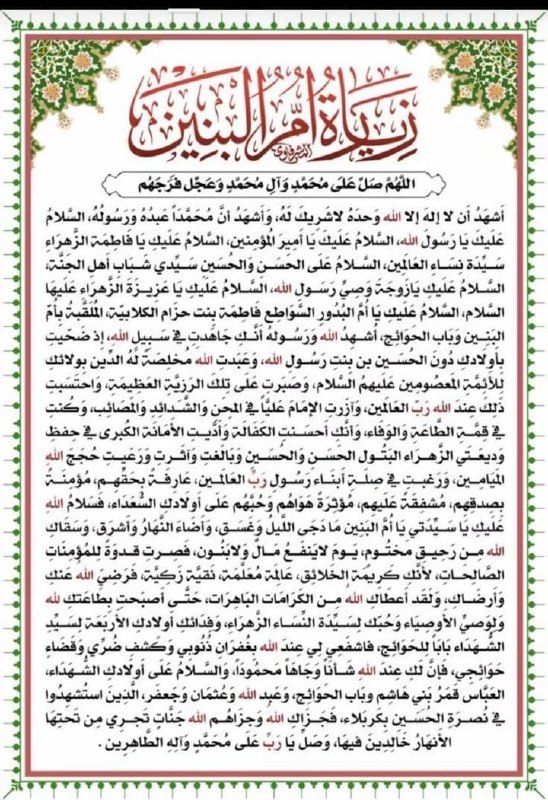 زِيَارَةُ أُمِّ البَنِين
اللَّهُمَّ صَلِّ عَلَى مُحَمَّدٍ وَآلِ مُحَمَّدٍ وَعَجِّل فَرَجَهُم
أَشهَدُ أَن لا إِلهَ إِلا الله وَحدَهُ لاشَرِيكَ لَهُ، وَأَشهَدُ أَنَّ مُحَمَّداً عَبدُهُ وَرَسُولُهُ، السَّلامُ
عَلَيكَ يَا رَسُول الله، السَّلامُ عَلَيكَ يَا أَمِيرَ المُؤمِنِين، السَّلامُ عَلَيكِ يَا فَاطِمَة الزَّهرَاء
سَيِّدَة نِسَاء العَالَمِين، السَّلامُ عَلَى الحَسَن وَالحُسَين سَيِّدَي شَبَاب أَهل الجَنَّة،
السَّلامُ عَلَيكِ يَازَوجَة وَصِيِّ رَسُول الله، السَّلامُ عَلَيكِ يَا عَزِيزَة الزَّهرَاء عَلَيهَا
السَّلام، السَّلامُ عَلَيكِ يَا أُمَّ البُدُور السَّوَاطِع فَاطِمَة بِنت حِزَام الكلابِيَّة، المُلَقَّبَة بِأُمّ
البَنِين وَبَاب الحَوَائِج، أُشهِدُ الله وَرَسُوله أَنَّكِ جَاهَدتِ فِي سَبِيل الله، إِذ ضَحَّيتِ
بِأَولادكِ دُونَ الحُسَين بن بِنتِ رَسُول الله، وَعَبَدتِ الله مُخلِصَةً لَهُ الدِّين بِولائكِ
لِلأَئِمَّة المَعصُومِين عَلَيهمُ السَّلام، وَصَبَرتِ عَلَى تِلكَ الرَزِيَّة العَظِيمَة، وَاحتَسَبتِ
ذَلِكَ عِندَ الله رَبّ العَالَمين، وَآزَرتِ الإِمَامَ عَلِيَّاً فِي المِحَن وَالشَّدائد وَالمَصَائِب، وَكُنتِ
فِي قِمَّة الطَّاعَة وَالوَفَاء، وَأَنَّكِ أَحسَنتِ الكَفَالَة وَأَدَّيتِ الأَمَانَة الكُبرى فِي حِفظ
وَدِيعَتَي الزَّهرَاء البَتُول الحَسَن وَالحُسَين وَبَالَغتِ وَآثَرتِ وَرَعَيتِ حُجَجَ الله
المَيَامِين، وَرَغبتِ فِي صِلَة أَبنَاء رَسُول رَبِّ العَالَمين، عَارِفَة بِحَقِّهم، مُؤمِنَةً
بِصِدقِهم، مُشفِقَةً عَلَيهم، مُؤثِرَةً هَوَاهُم وَحُبَّهُم عَلَى أَولادكِ السُّعَدَاء، فَسَلامُ الله
عَلَيكِ يَا سَيِّدَتِي يَا أُمَّ البَنِين مَا دَجَى اللَّيلُ وَغَسَق، وَأَضَاءَ النَّهَارُ وَأَشرَق، وَسَقَاكِ
الله مِن رَحِيق مَختُوم، يَومَ لايَنفَعُ مَالٌ وَلابَنُون، فَصِرتِ قدوَةً لِلمُؤمِنَات
الصَّالِحَات، لأَنَّكِ كَرِيمَة الخَلائِق، عَالِمَة مُعَلَّمَة، نَقِيَّة زَكِيَّة، فَرَضِيَ الله عَنكِ
وَأَرضَاكِ، وَلَقَد أَعطَاكِ الله مِنَ الكَرَامَات البَاهِرَات، حَتَّى أَصبَحتِ بِطَاعَتكِ لله
وَلِوَصِيِّ الأَوصِيَاء وَحُبّكِ لِسَيِّدَة النِّسَاء الزَّهرَاء، وَفِدَائكِ أَولادكِ الأَربَعَة لِسَيِّدِ
الشُّهَدَاء بَابَاً لِلحَوَائِج، فَاشفَعِي لِي عِندَ الله بِغُفرَان ذُنُوبِي وَكَشف ضُرِّي وَقَضَاء
حَوَائِجِي، فَإِنَّ لَكِ عِندَ الله شَأنَاً وَجَاهَاً مَحمُودَا، وَالسَّلامُ عَلَى أَولادكِ الشُّهَدَاء،
العَبَّاس قَمَرُ بَنِي هَاشِم وَبَاب الحَوَائِج، وَعَبد الله وَعُثمَان وَجَعفَر، الَّذِينَ استُشهِدُوا
فِي نُصرَة الحُسَين بِكَربَلاء، فَجَزَاكِ الله وَجَزَاهُم الله جَنَّاتٍ تَجرِي مِن تَحتِهَا
الأَنهَارُ خَالِدِينَ فِيهَا، وَصَلِّ يَا رَبّ عَلَى مُحَمَّدٍ وَآلِهِ الطَّاهِرِين .